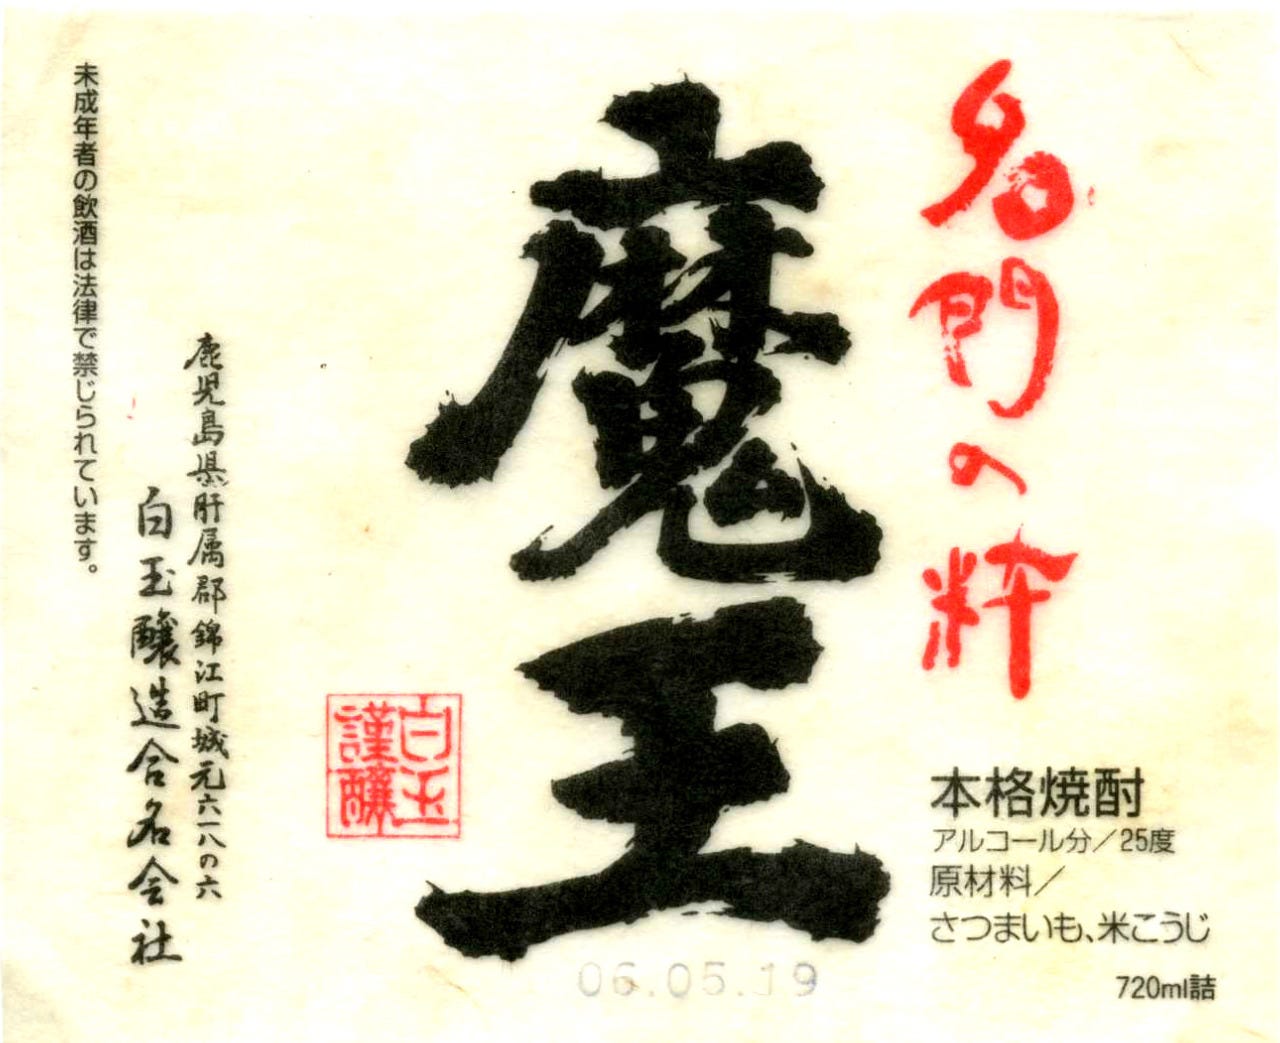 名門の粋
魔王
本格焼酎
アルコール分／25度
原材料／
さつまいも、米こうじ
720ml詰
白玉
謹醸
鹿児島県肝属郡錦江町城元六一八の六
白玉醸造合名会社
未成年者の飲酒は法律で禁じられています。
06.05.19